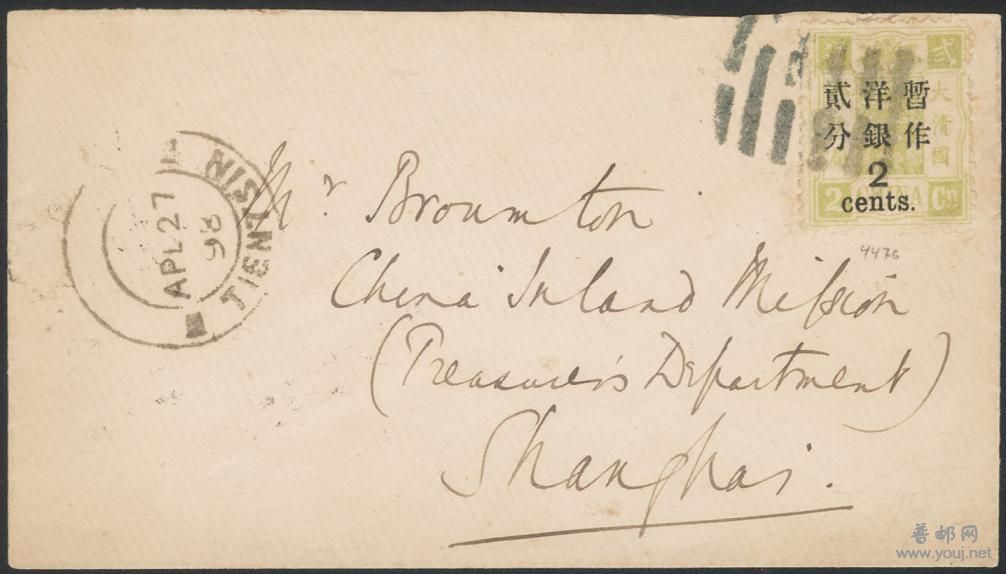 暫作
洋銀
貳分
2
cents.
大清國
貳
2
Cn.
4476
TIENTSIN
APL 27
98
Mr. Broumton
China Inland Mission
(Treasurer's Department)
Shanghai.
普邮网
www.youj.net